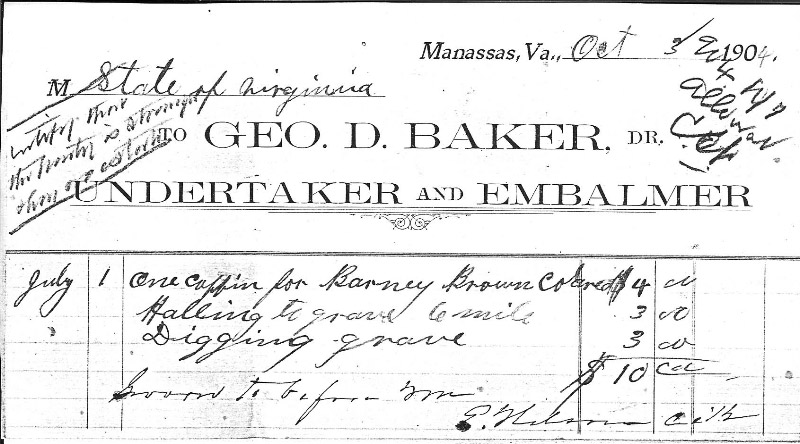 Manassas, Va., Oct 3 1904.
M State of Virginia
allowed
certify that
TO GEO. D. BAKER, DR.
UNDERTAKER AND EMBALMER
July 1 One coffin for Barney Brown Colored $4 00
Halling to grave 6 mile 3 00
Digging grave 3 00
$10 00
Sworn to before me